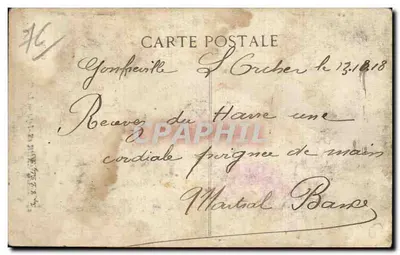 7£
CARTE POSTALE
Gonfreville L'Orcher le 13.10.18
Recevez du Havre une
cordiale poignée de main
Martial
DELPHIL